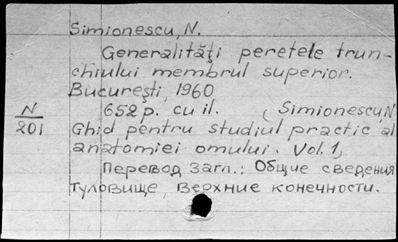 Simionescu, N.
Generalităţi peretele trun-
chiului membrul superior.
Bucureşti, 1960
652 p. cu il. (Simionescu N
N
201
Ghid pentru studiul practic al
anatomiei omului. Vol. 1,
Перевод загл.: Общие сведения
Туловище, Верхние конечности.